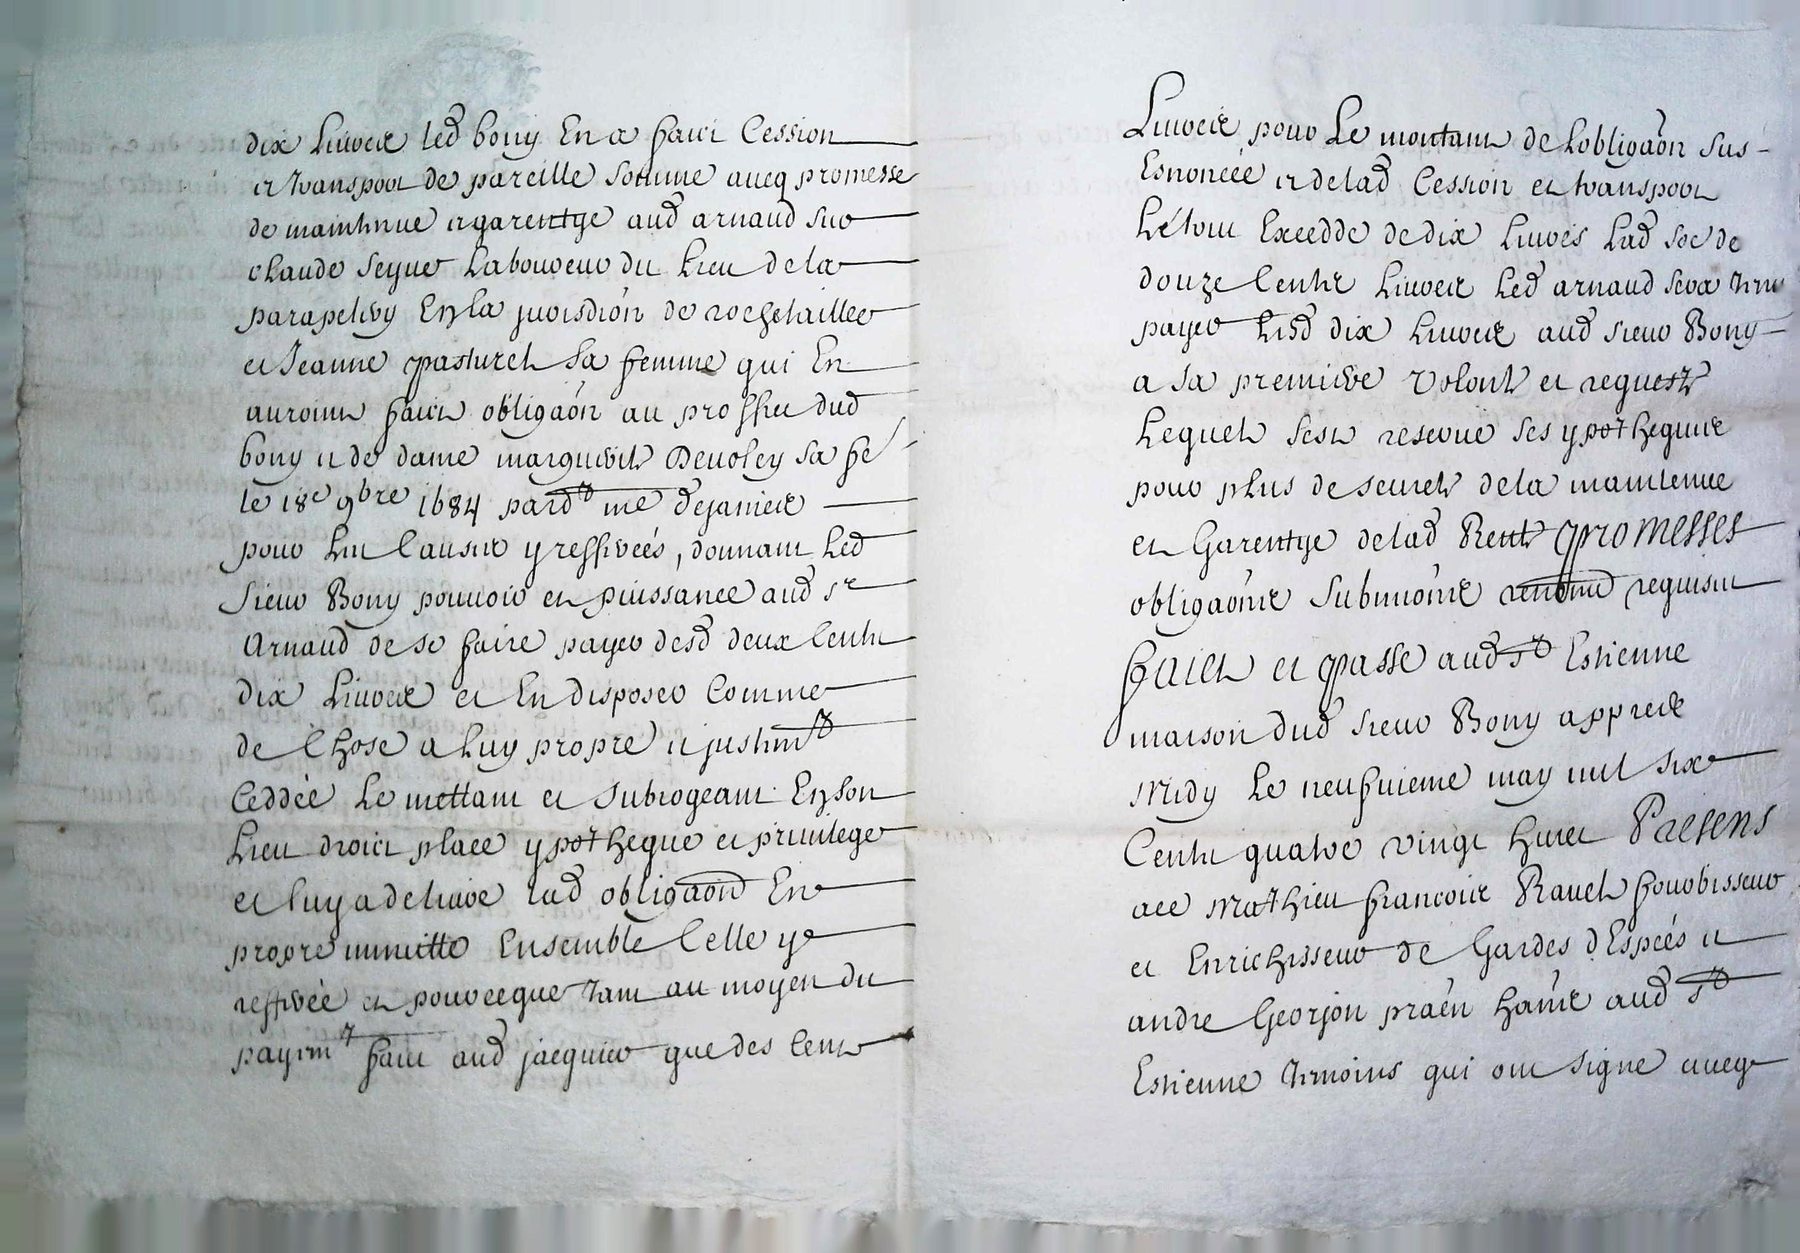 dix Livres led bony En a faict Cession
et transport de pareille somme aveq promesse
de maintenue et garentye aud arnaud sur
claude seyve Laboureur du Lieu de la
parapelivy En la jurisdiōn de rochetaillee
et Jeanne pasturel sa femme qui En
auroint faict obligāon au proffict dud
bony et de dame marguerite Devoley sa fē
le 18e 9bre 1684 pard me dejanieres
pour les Causes y refferéés, donnant Led
Sieur Bony pouvoir et puissance aud sr
Arnaud de se faire payer desd deux Cents
dix Livres et En disposer Comme
de Chose a luy propre et justemt
Ceddéé Le mettant et subrogeant En son
Lieu droict place ypotheque et privilege
et luy a delivré lad obligaōn En
propre minutte Ensemble Celle y
refferéé et pourceque tant au moyen du
payemt faict aud jacquier que des Cent
Livres pour Le montant de Lobligāon sus-
Esnoncéé et de lad Cession et transport
Le tout Excedde de dix Livres Lad soē de
douze Cents Livres Led arnaud sera tenu
payer Lesd dix Livres aud sieur Bony
a sa premiere volonté et requeste
Lequel sest reservé ses ypotheques
pour plus de seureté de la maintenue
et Garentye de lad Rente promesses
obligaōns submiōns renōns requisit
faict et passé aud st Estienne
maison dud sieur Bony appres
Midy Le neufvieme may mil six
Cents quatre vingt huict Presens
ace Mathieu francois Ravel fourbisseur
et Enrichisseur de Gardes d'Espéés et
andre Georjon praēn hāns aud st
Estienne temoins qui ont signé aveq